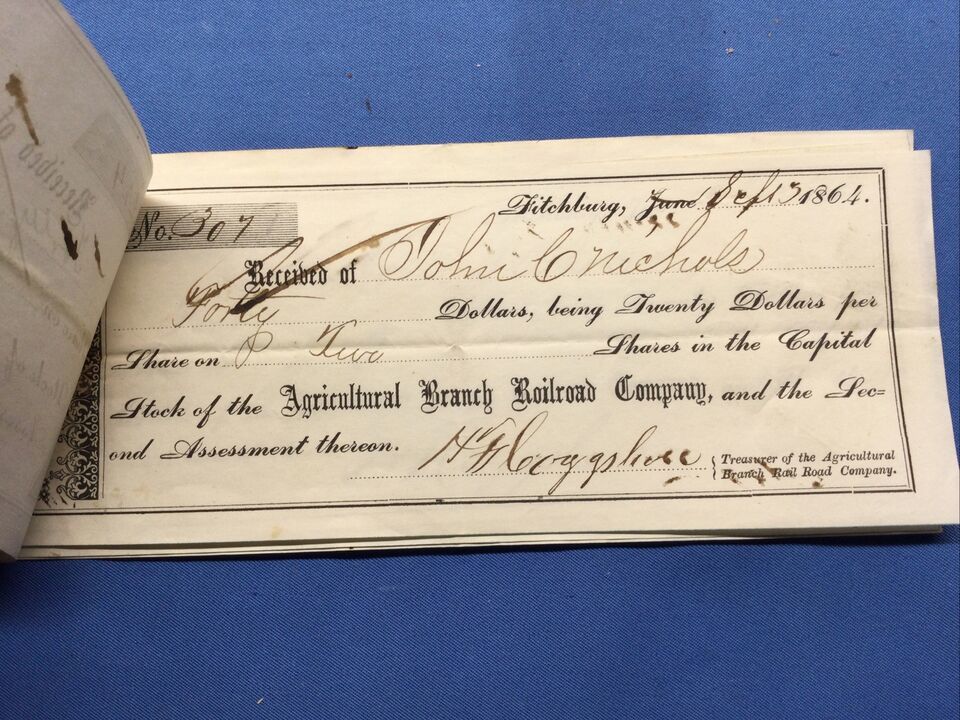 Fitchburg, June Sept 13 1864.
No. 307
Received of John C Nichols
Forty Dollars, being Twenty Dollars per
Share on Two Shares in the Capital
Stock of the Agricultural Branch Railroad Company, and the Sec=
ond Assessment thereon.
Coggshall
Treasurer of the Agricultural
Branch Rail Road Company.
Received of